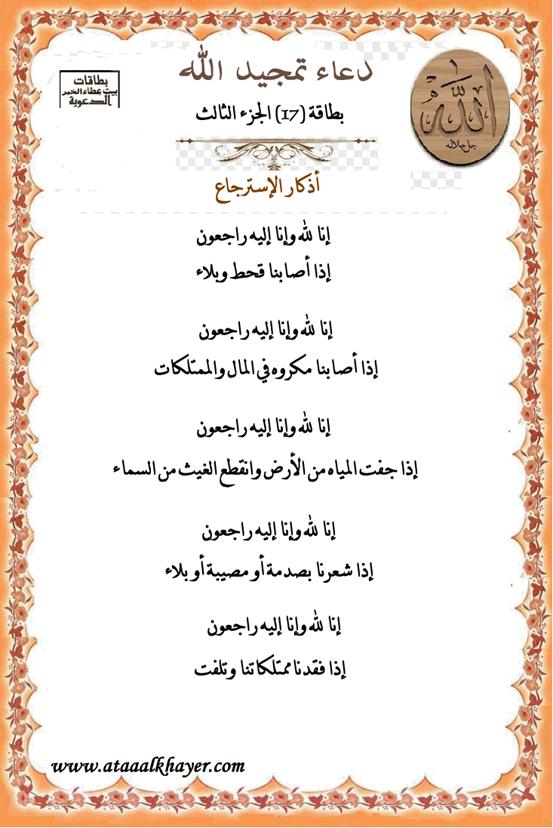 دعاء تمجيد الله
بطاقة (17) الجزء الثالث
بطاقات
بيت عطاء الخير
الدعوية
الله
جل جلاله
أذكار الإسترجاع
إنا لله وإنا إليه راجعون
إذا أصابنا قحط وبلاء
إنا لله وإنا إليه راجعون
إذا أصابنا مكروه في المال والممتلكات
إنا لله وإنا إليه راجعون
إذا جفت المياه من الأرض وانقطع الغيث من السماء
إنا لله وإنا إليه راجعون
إذا شعرنا بصدمة أو مصيبة أو بلاء
إنا لله وإنا إليه راجعون
إذا فقدنا ممتلكاتنا وتلفت
www.ataaalkhayer.com